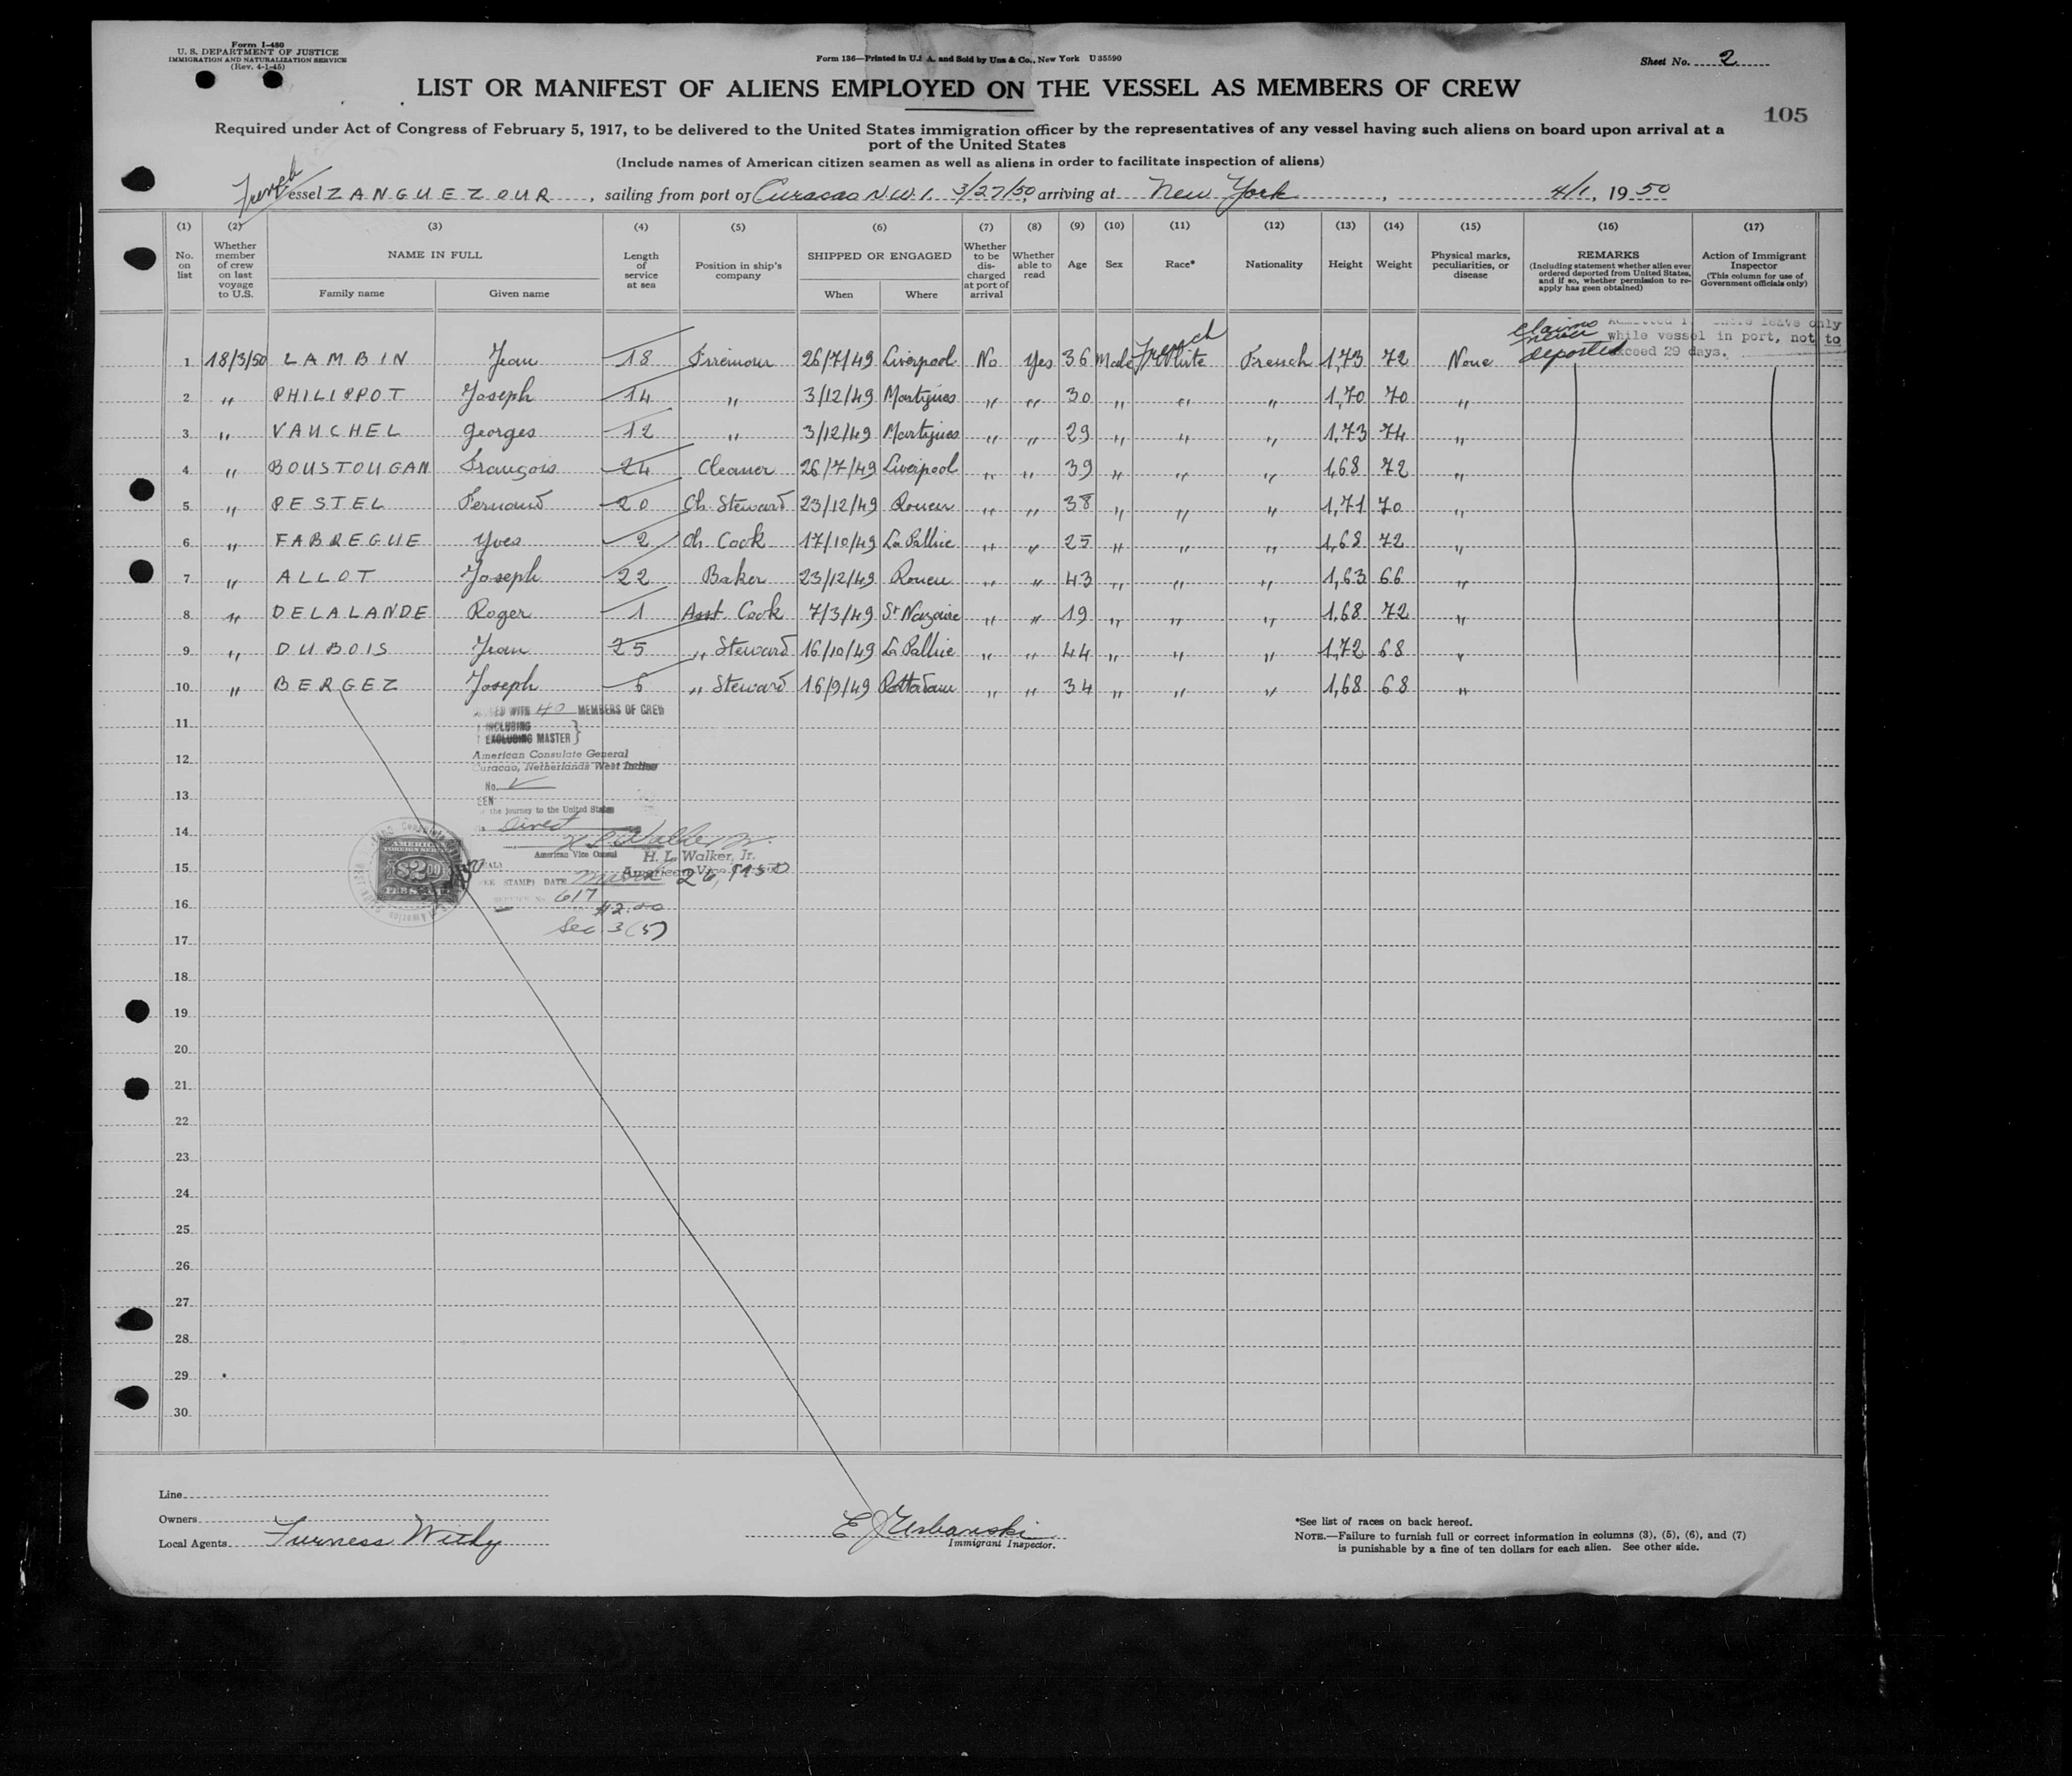 Form I-480
U. S. DEPARTMENT OF JUSTICE
IMMIGRATION AND NATURALIZATION SERVICE
(Rev. 4-1-45)
Form 136—Printed in U.S.A. and Sold by Unz & Co., New York U35590
Sheet No. 2
LIST OR MANIFEST OF ALIENS EMPLOYED ON THE VESSEL AS MEMBERS OF CREW
105
Required under Act of Congress of February 5, 1917, to be delivered to the United States immigration officer by the representatives of any vessel having such aliens on board upon arrival at a
port of the United States
(Include names of American citizen seamen as well as aliens in order to facilitate inspection of aliens)
French Vessel ZANGUEZOUR, sailing from port of Curacao N.W.I. 3/27/50, arriving at New York, 4/1, 1950
(1) (2) (3) (4) (5) (6) (7) (8) (9) (10) (11) (12) (13) (14) (15) (16) (17)
No. on list
Whether member of crew on last voyage to U.S.
NAME IN FULL
Family name Given name
Length of service at sea
Position in ship's company
SHIPPED OR ENGAGED
When Where
Whether to be discharged at port of arrival
Whether able to read
Age
Sex
Race*
Nationality
Height
Weight
Physical marks, peculiarities, or disease
REMARKS
(Including statement whether alien ever ordered deported from United States, and if so, whether permission to re-apply has geen obtained)
Action of Immigrant Inspector
(This column for use of Government officials only)
leave only
while vessel in port, not to
exceed 29 days.
claims never deported
French
1 18/3/50 LAMBIN Jean 18 26/7/49 Liverpool No Yes 36 Male White French 1,73 72 None
2 " PHILIPPOT Joseph 14 " 3/12/49 Martigues " " 30 " " " 1,70 70 "
3 " VAUCHEL Georges 12 " 3/12/49 Martigues " " 29 " " " 1,73 74 "
4 " BOUSTOUGAN François 24 Cleaner 26/7/49 Liverpool " " 39 " " " 1,68 72 "
5 " PESTEL Fernand 20 Ch. Steward 23/12/49 Rouen " " 38 " " " 1,71 70 "
6 " FABREGUE Yves 2 Ch. Cook 17/10/49 La Pallice " " 25 " " " 1,68 72 "
7 " ALLOT Joseph 22 Baker 23/12/49 Rouen " " 43 " " " 1,63 66 "
8 " DELALANDE Roger 1 Asst. Cook 7/3/49 St Nazaire " " 19 " " " 1,68 72 "
9 " DUBOIS Jean 25 " Steward 16/10/49 La Pallice " " 44 " " " 1,72 68 "
10 " BERGEZ Joseph 6 " Steward 16/9/49 " " 34 " " " 1,68 68 "
11
12
13
14
15
16
17
18
19
20
21
22
23
24
25
26
27
28
29
30
WITH 40 MEMBERS OF CREW
INCLUDING
EXCLUDING MASTER }
American Consulate General
Curacao, Netherlands West Indies
No.
the journey to the United States
Direct
H L Walker Jr.
American Vice Consul H. L. Walker, Jr.
American Vice
FEE STAMP) DATE March 26, 1950
SERVICE No. 617
$2.00
Sec. 3(5)
AMERICAN
FOREIGN SERVICE
$2.00
Line
Owners
Local Agents Furness Withy
E J Urbanski
Immigrant Inspector.
*See list of races on back hereof.
NOTE.—Failure to furnish full or correct information in columns (3), (5), (6), and (7)
is punishable by a fine of ten dollars for each alien. See other side.